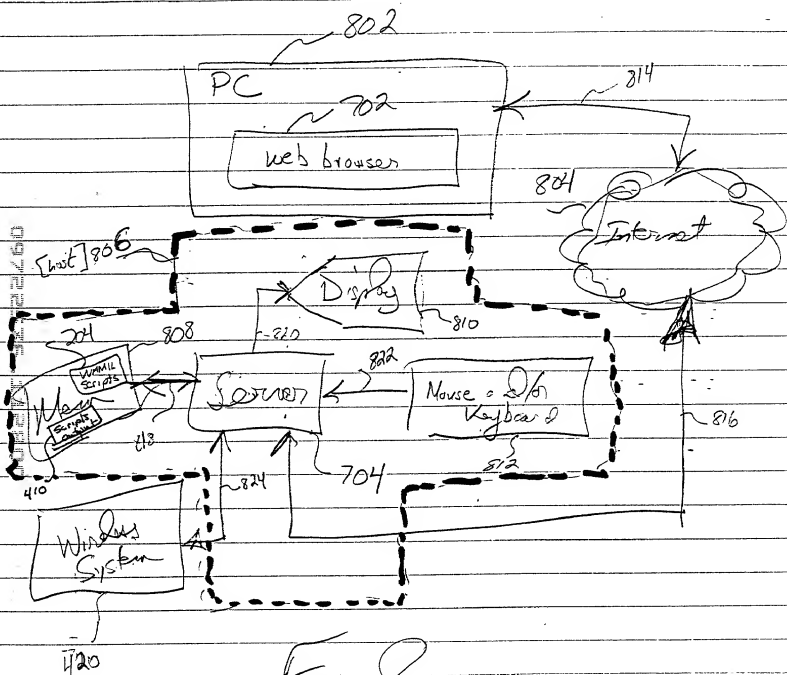 802
PC
814
702
web browser
804
Internet
[host] 806
Display
810
820
204
808
WMML
Scripts
Mem
Scripts
410
418
Server
822
Mouse and/or
Keyboard
812
704
816
824
Wireless
System
420